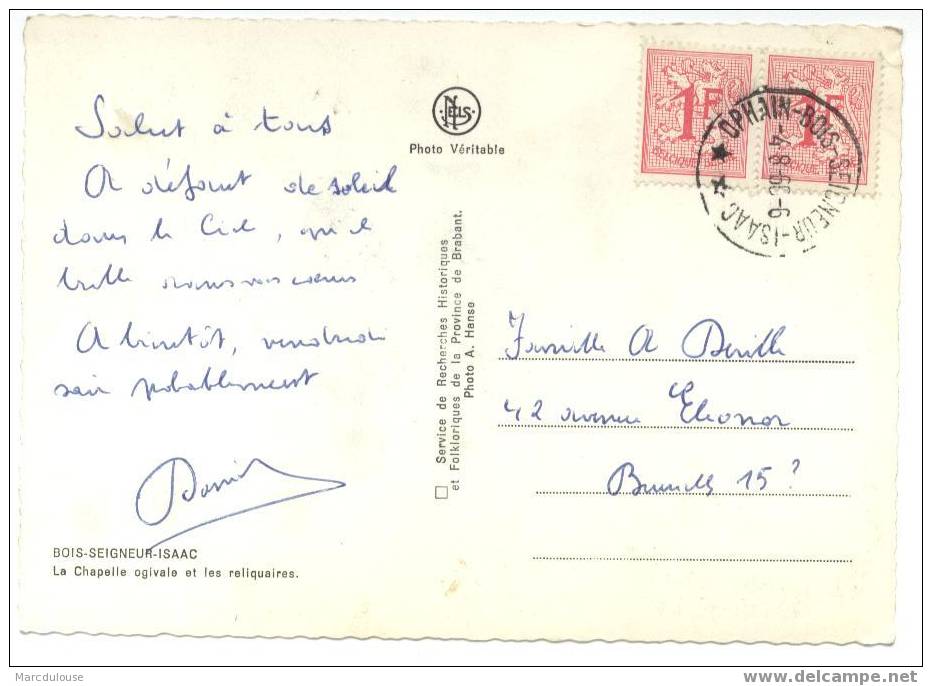 Salut à tous
A défaut de soleil
dans le Ciel, qu'il
brille dans vos coeurs
A bientôt, vendredi
soir probablement
BOIS-SEIGNEUR-ISAAC
La Chapelle ogivale et les reliquaires.
NELS
Photo Véritable
Service de Recherches Historiques
et Folkloriques de la Province de Brabant.
Photo A. Hanse
1F
BELGIQUE
1F
OPHAIN-BOIS-SEIGNEUR-ISAAC
Famille A Deville
42 avenue Eléonor
Bruxelles 15?
Marcdulouse
delcampe.net